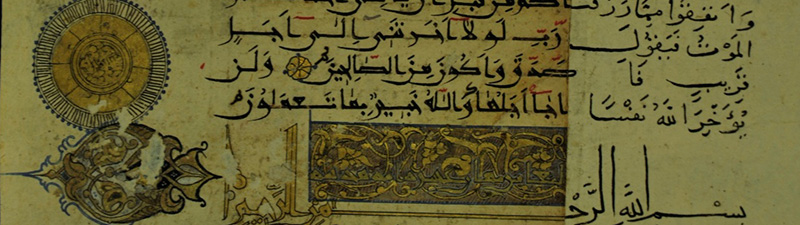 وَانفِقُوا مِمَّا رَزَقْنَا
المَوْتُ فَيَقُولَ رَبِّ لَوْلَا أَخَّرْتَنِي إِلَى أَجَلٍ
قَرِيبٍ فَأَصَّدَّقَ وَأَكُونَ مِنَ الصَّالِحِينَ وَلَنْ
يُؤَخِّرَ اللهُ نَفْسًا إِذَا جَاءَ أَجَلُهَا وَاللهُ خَبِيرٌ بِمَا تَعْمَلُونَ
بِسْمِ اللهِ الرَّحْ